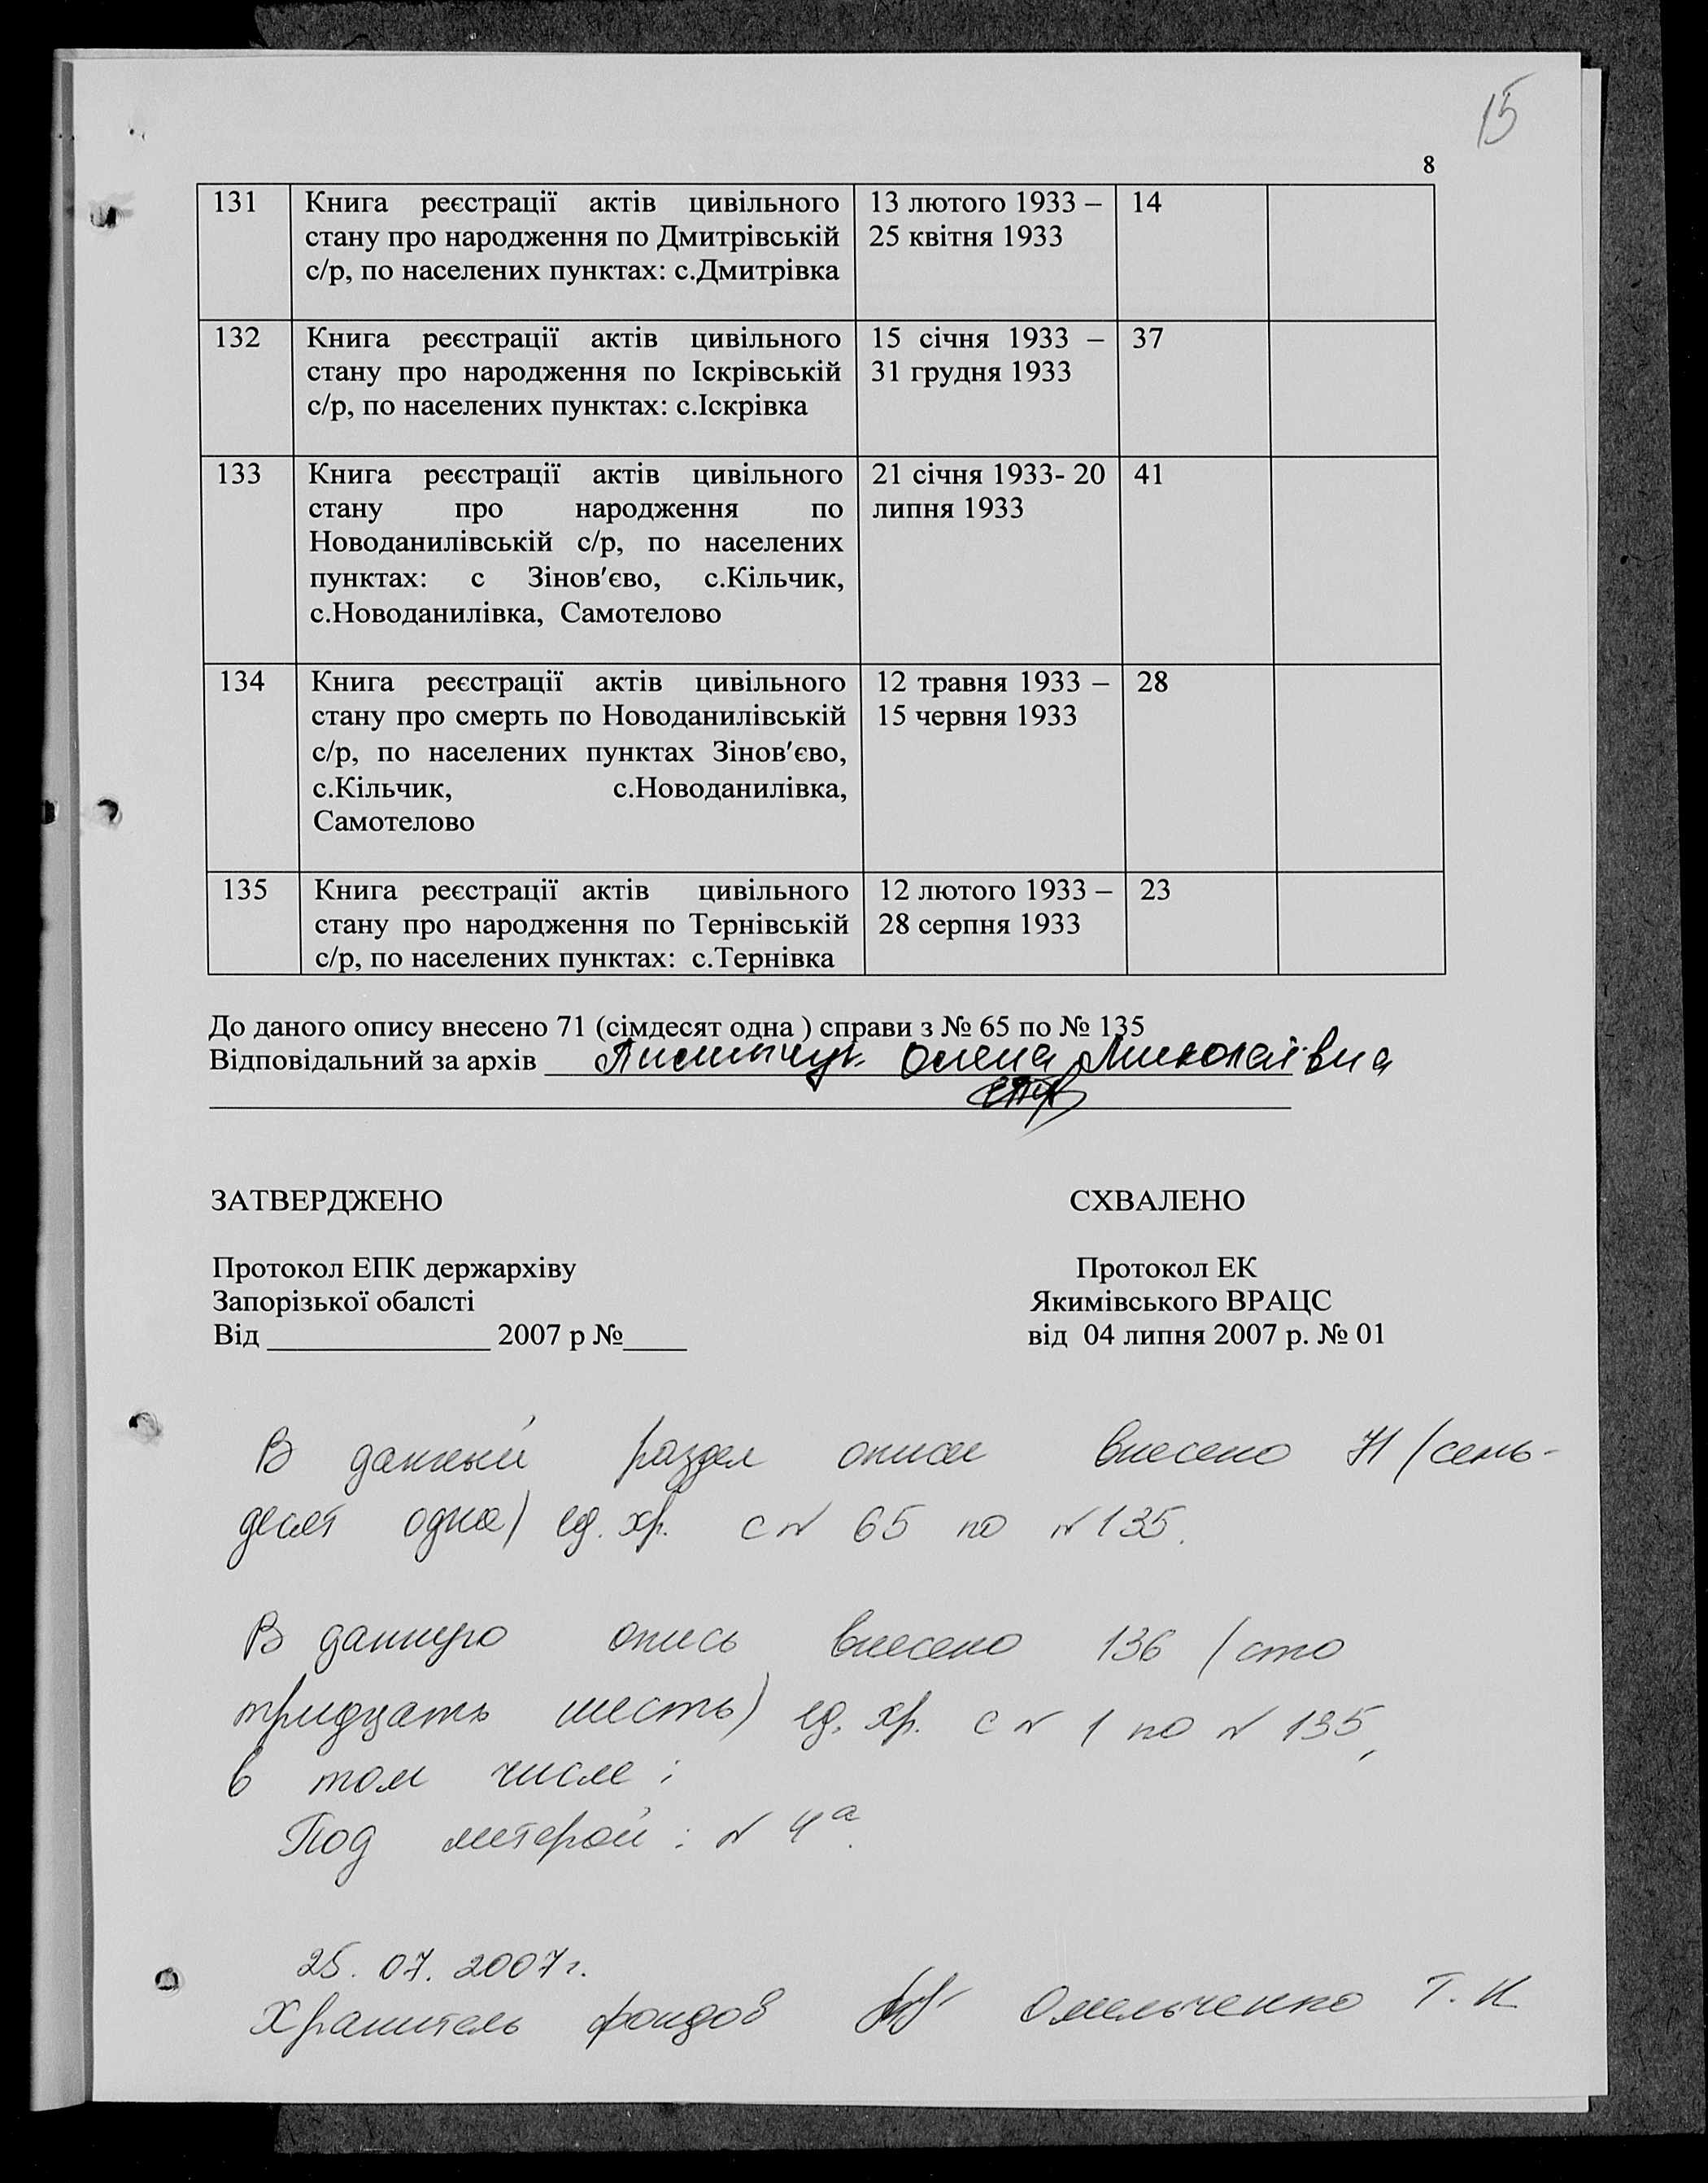 15
8
131 Книга реєстрації актів цивільного 13 лютого 1933 – 14
стану про народження по Дмитрівській 25 квітня 1933
с/р, по населених пунктах: с.Дмитрівка
132 Книга реєстрації актів цивільного 15 січня 1933 – 37
стану про народження по Іскрівській 31 грудня 1933
с/р, по населених пунктах: с.Іскрівка
133 Книга реєстрації актів цивільного 21 січня 1933- 20 41
стану про народження по липня 1933
Новоданилівській с/р, по населених
пунктах: с Зінов′єво, с.Кільчик,
с.Новоданилівка, Самотелово
134 Книга реєстрації актів цивільного 12 травня 1933 – 28
стану про смерть по Новоданилівській 15 червня 1933
с/р, по населених пунктах Зінов′єво,
с.Кільчик, с.Новоданилівка,
Самотелово
135 Книга реєстрації актів цивільного 12 лютого 1933 – 23
стану про народження по Тернівській 28 серпня 1933
с/р, по населених пунктах: с.Тернівка
До даного опису внесено 71 (сімдесят одна ) справи з № 65 по № 135
Відповідальний за архів Олена Миколаївна
ЗАТВЕРДЖЕНО СХВАЛЕНО
Протокол ЕПК держархіву Протокол ЕК
Запорізької обалсті Якимівського ВРАЦС
Від ________________ 2007 р №____ від 04 липня 2007 р. № 01
В данный раздел описи внесено 71 (семь-
десят одна) ед. хр. с № 65 по № 135.
В данную опись внесено 136 (сто
тридцать шесть) ед. хр. с № 1 по № 135,
в том числе:
Под литерой: № 4а.
25. 07. 2007г.
Хранитель фондов Омельченко Т. К